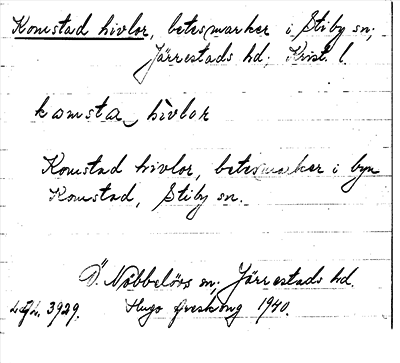 Komstad hivlor, betesmarker i Stiby sn;
Järrestads hd; Krist. l.
komsta hivlor
Komstad hivlor, betesmarker i byn
Komstad, Stiby sn.
Ö. Nöbbelövs sn; Järrestads hd.
3929. Hugo Areskoug 1940.